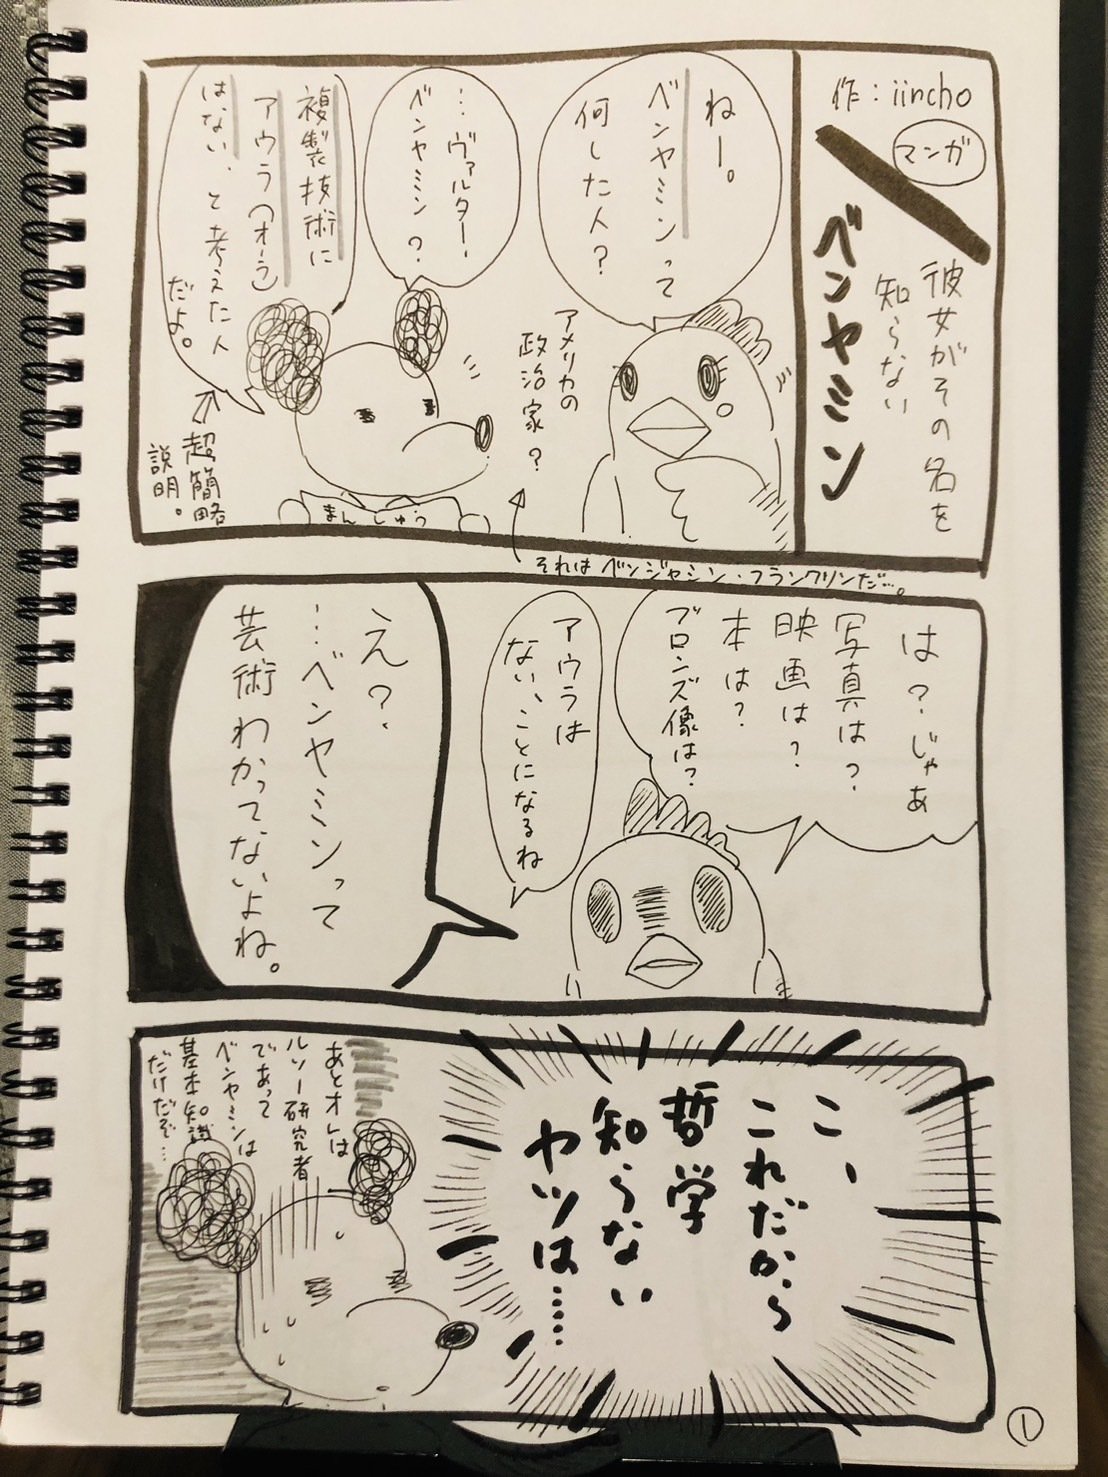 作:iincho
マンガ
彼女がその名を
知らない
ベンヤミン
ねー。
ベンヤミンって
何した人?
アメリカの
政治家?
それはベンジャミン・フランクリンだ…。
…ヴァルター・
ベンヤミン?
複製技術に
アウラ(オーラ)
はない、と考えた人
だよ。
超簡略
説明。
まんしゅう
は?じゃあ
写真は?
映画は?
本は?
ブロンズ像は?
アウラは
ない、ことになるね
え?
…ベンヤミンって
芸術わかってないよね。
こ、
これだから
哲学
知らない
ヤツは……
あとオレは
ルソー研究者
であって
ベンヤミンは
基本知識
だけだぞ…
1